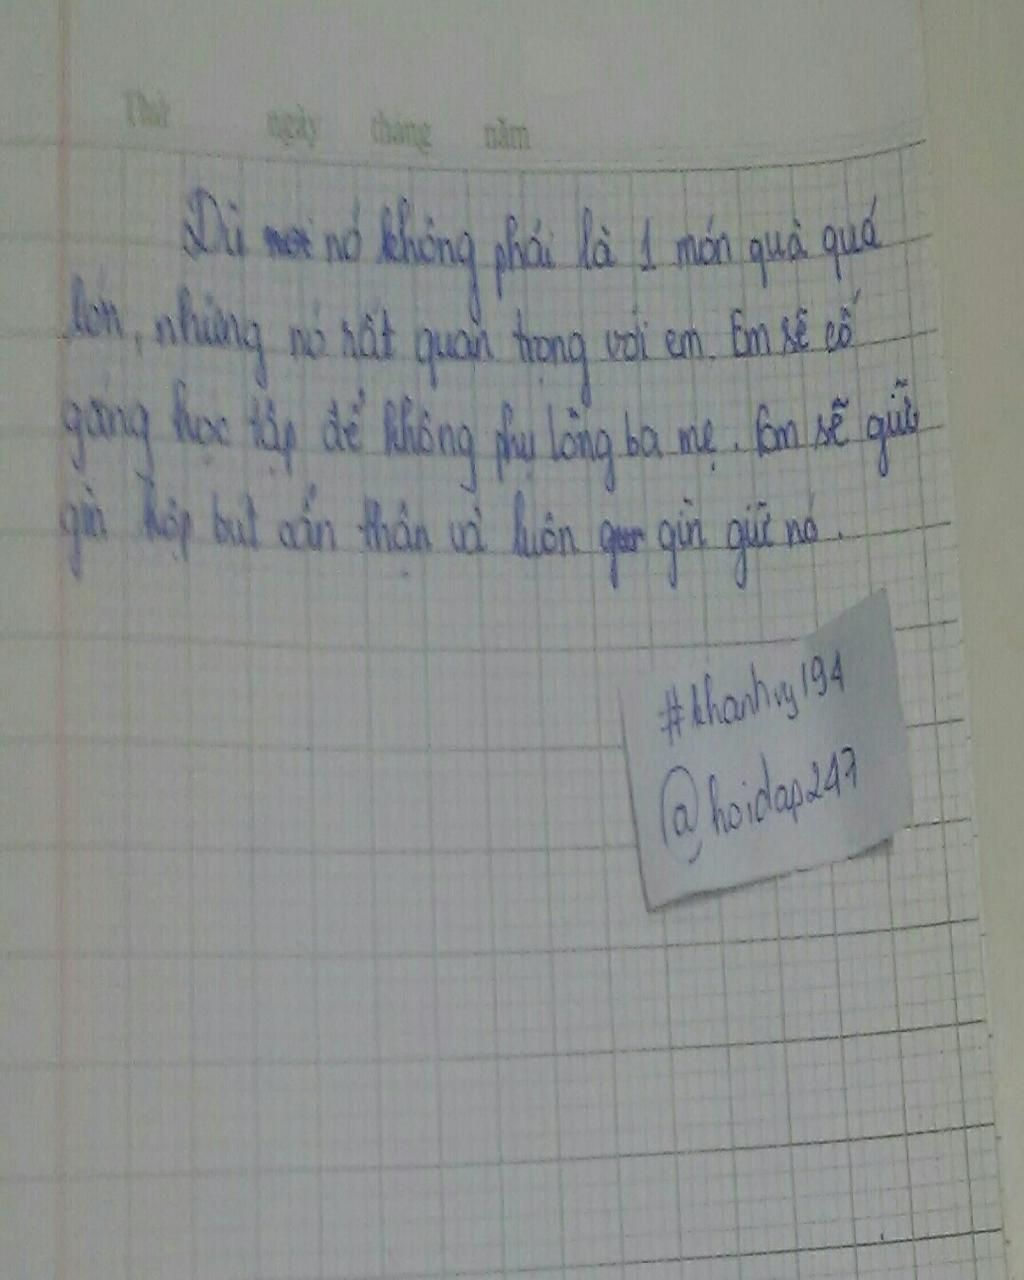 Thứ ngày tháng năm
Dù nó không phải là 1 món quà quá
lớn, nhưng nó rất quan trọng với em. Em sẽ cố
gắng học tập để không phụ lòng ba mẹ. Em sẽ giữ
gìn hộp bút cẩn thận và luôn gìn giữ nó.
#khanhvy194
@hoidap247